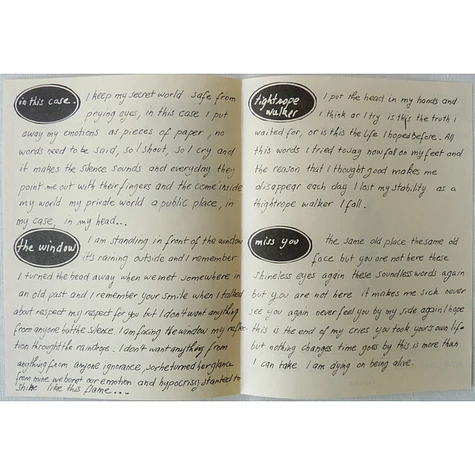 in this case.
I keep my secret world safe from
prying eyes, in this case I put
away my emotions as pieces of paper, no
words need to be said, so I shout, so I cry and
it makes the silence sounds and everyday they
point me out with their fingers and the come inside
my world my private world a public place, in
my case, in my head...
the window
I am standing in front of the window
it's raining outside and I remember
I turned the head away when we met somewhere in
an old past and I remember your smile when I talked
about respect my respect for you but I don't want anything
from anyone but the silence. I am facing the window my reflec-
tion through the raindrops. I don't want anything from
anything from anyone ignorance, so she turned her glance
from mine we boret our emotion and hypocrisy stanted to
shine like this flame...
tightrope
walker
I put the head in my hands and
I think or I try is this the truth I
waited for, or is this the life I hoped before.. All
this words I tried to say now fall on my feet and
the reason that I thought good makes me
disappear each day I lost my stability as a
thightrope walker I fall.
miss you
the same old place the same old
face but you are not here these
shineless eyes again these soundless words again
but you are not here it makes me sick never
see you again never feel you by my side again I hope
this is the end of my cries you took yours own life
but nothing changes time goes by this is more than
I can take I am dying on being alive.